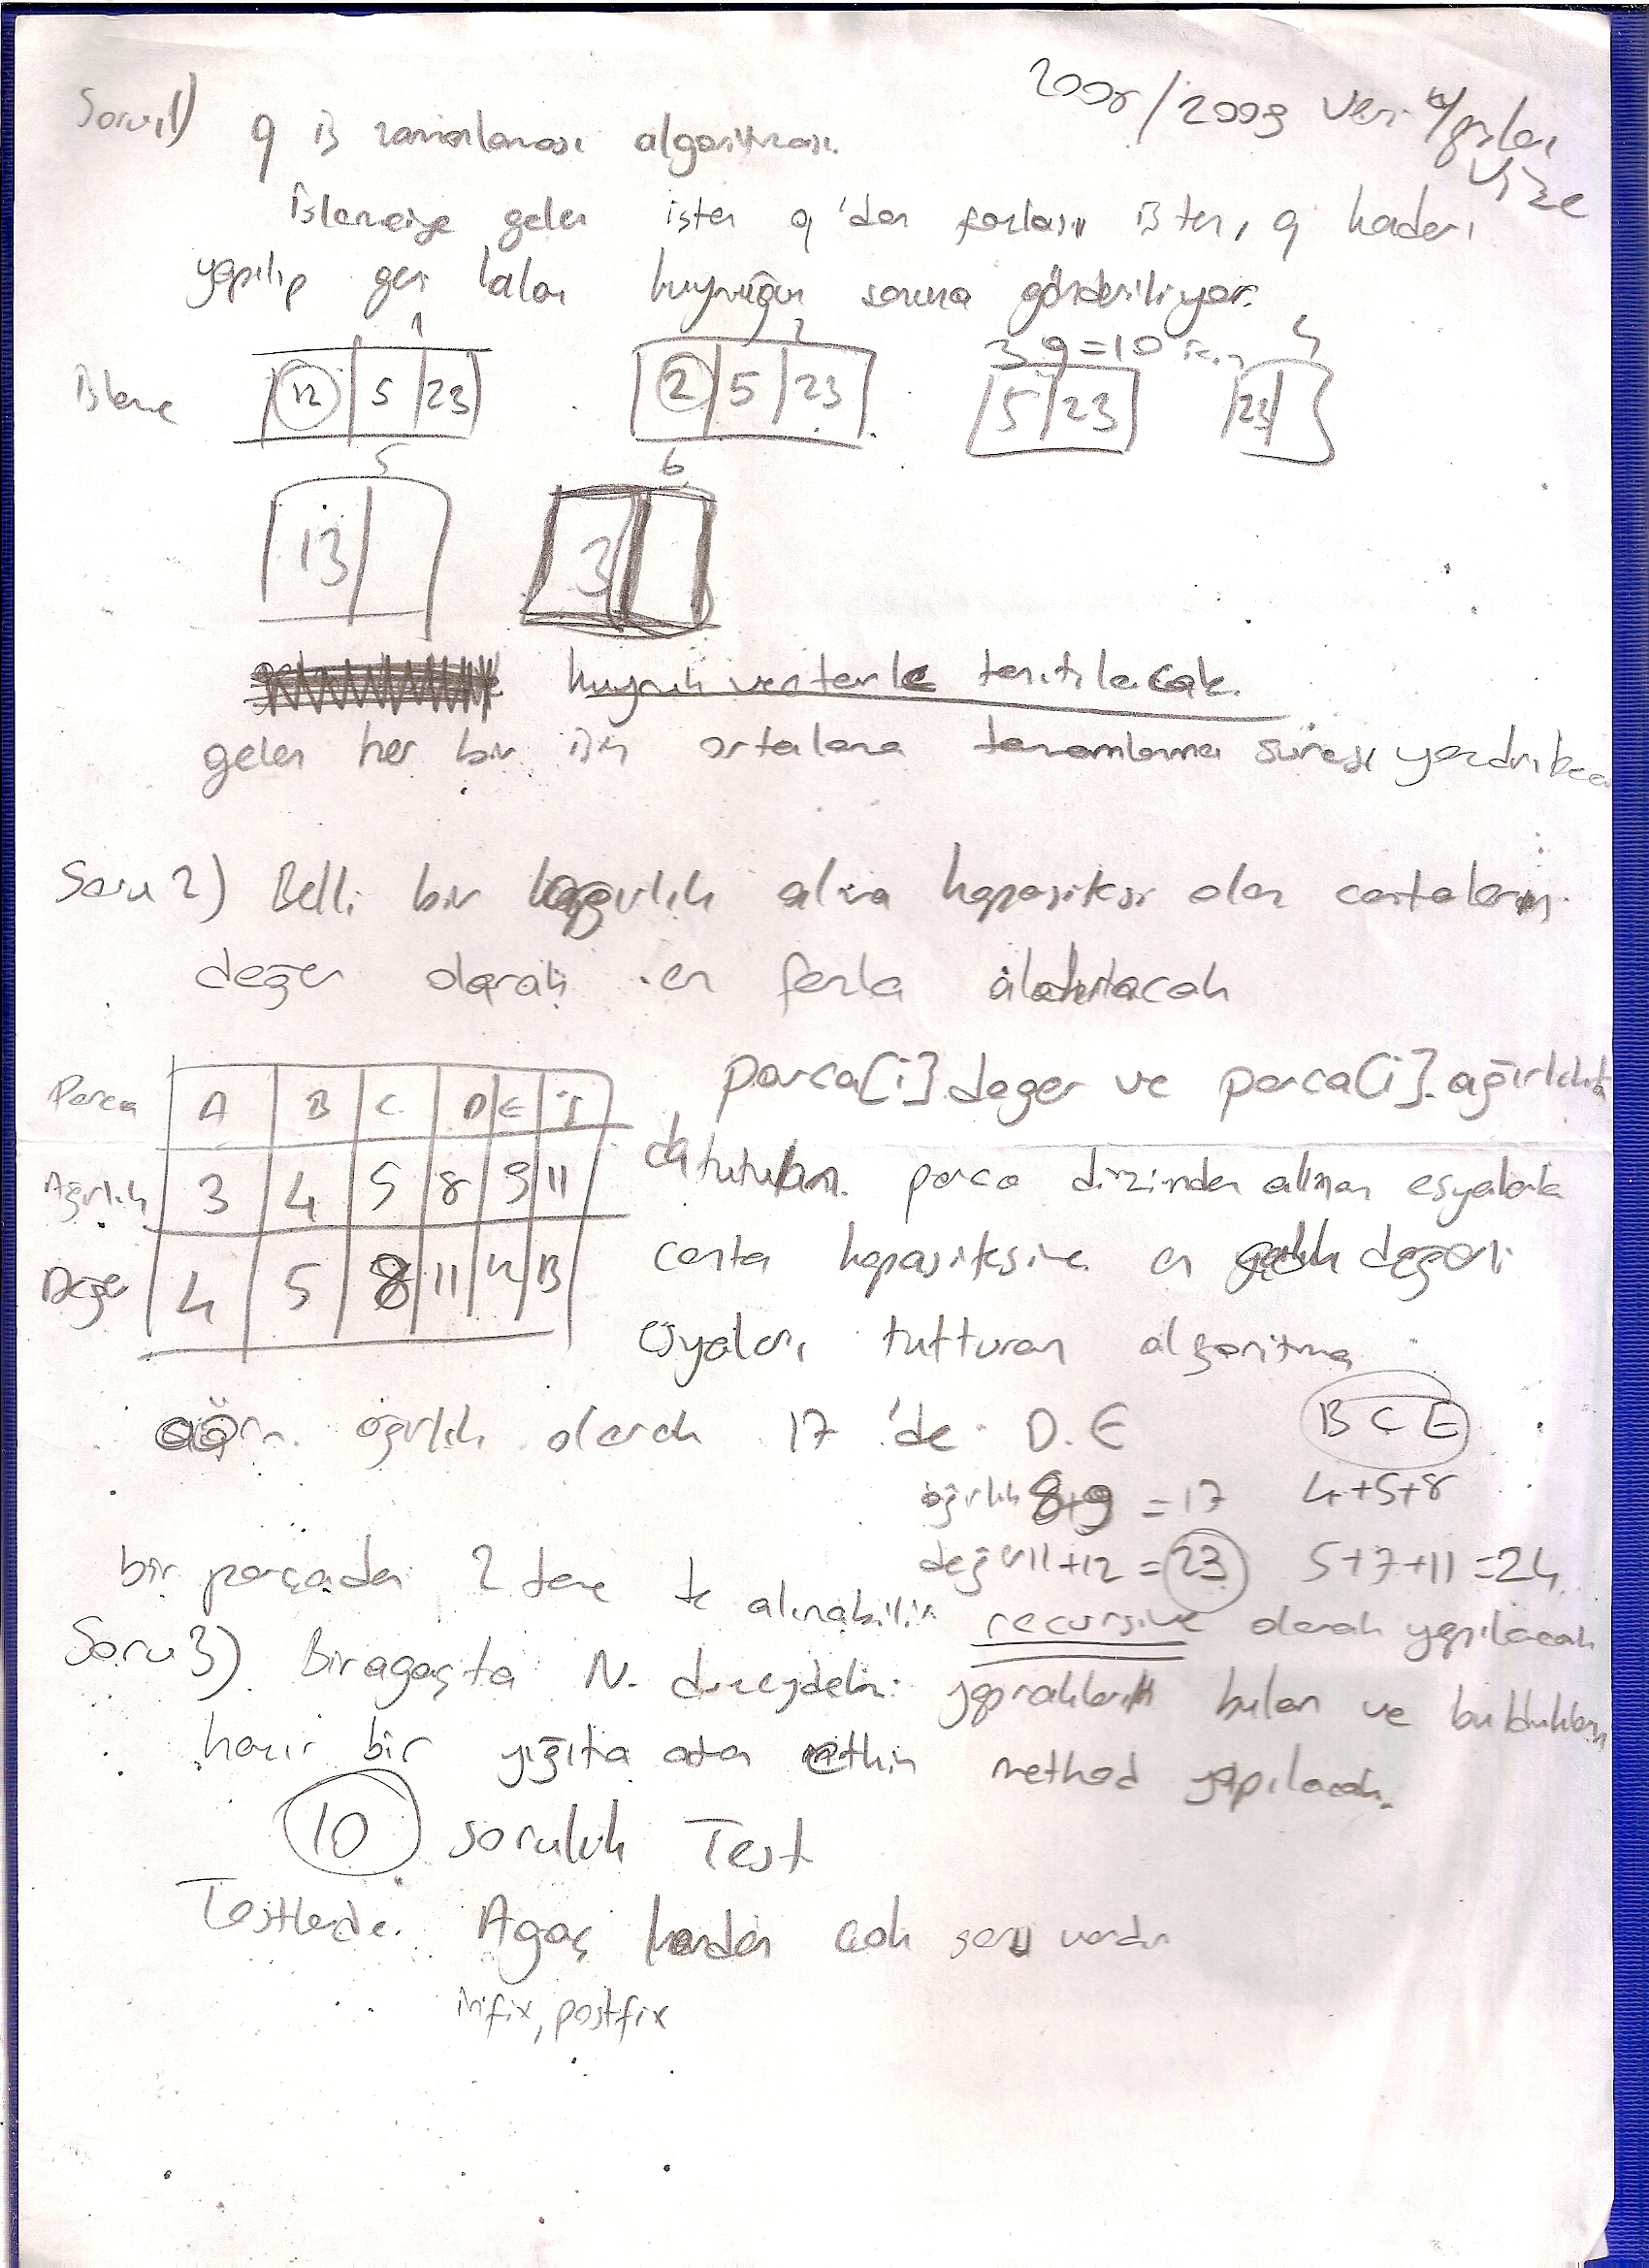 2008/2009 Veri Yapıları
Vize
Soru 1) q iş zamanlaması algoritması.
İşlemciye gelen işten q'dan fazlası işten, q kadarı
yapılıp geri kalan kuyruğun sonuna gönderiliyor.
1 2 3 q=10 için 4
İşleme 12 5 23 2 5 23 5 23 23
5 6
13 3
kuyruk verilerle temsil edilecek.
gelen her bir işin ortalama tamamlanma süresi yazdırılacak
Soru 2) Belli bir ağırlık alma kapasitesi olan çantaların
değer olarak en fazla aldırılacak
Parca A B C D E
Ağırlık 3 4 5 8 9 11
Değer 4 5 8 11 12 13
parca[i].deger ve parca[i].ağırlık
da tutulan. parca dizinden alınan esyalarla
canta kapasitesine en değerli
esyaları tutturan algoritma
ağırlık olarak 17'de D.E B C E
ağırlık 8+9 = 17 4+5+8
değer 11+12 = 23 5+7+11 = 24
bir parçadan 2 tane de alınabilir recursive olarak yapılacak
Soru 3) Bir agaçta N. duzeydeki yaprakların bulan ve bulduklarını
hazır bir yığıta atan etkin method yapılacak.
10 soruluk Test
Testlerde. Agaç çok soru vardı
infix, postfix